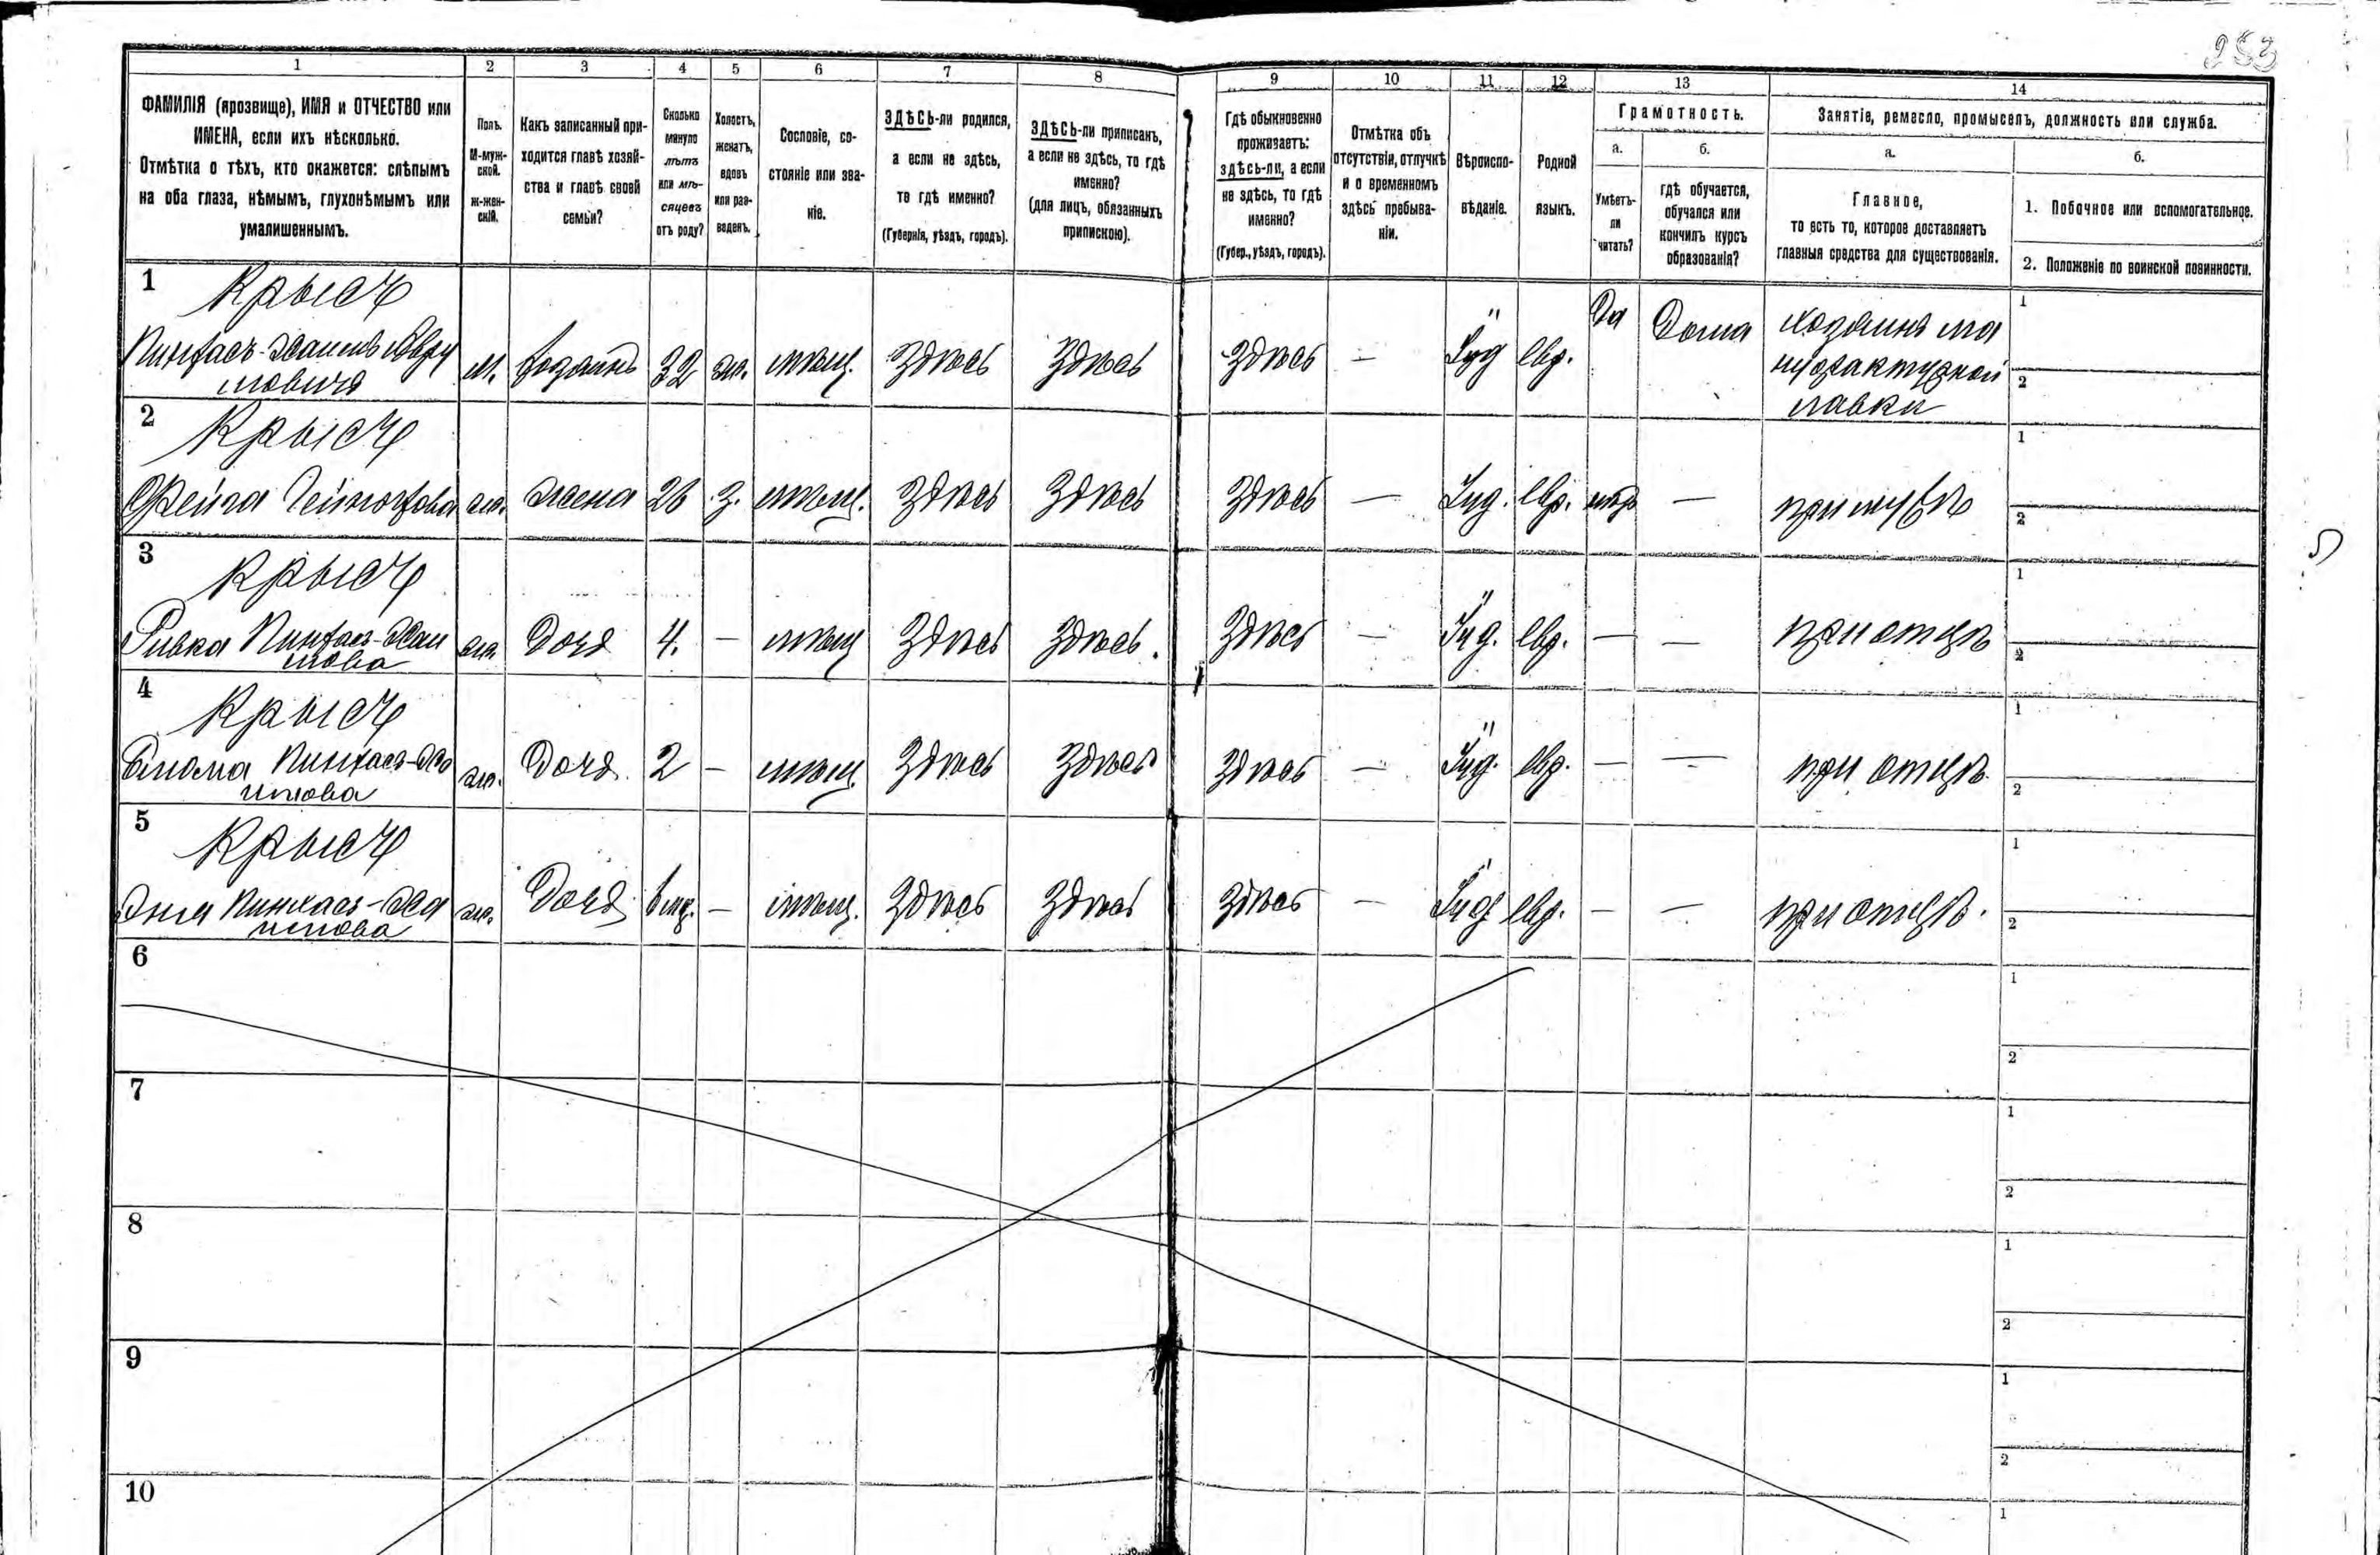 253
1 2 3 4 5 6 7 8 9 10 11 12 13 14
ФАМИЛІЯ (прозвище), ИМЯ и ОТЧЕСТВО или
ИМЕНА, если ихъ нѣсколько.
Отмѣтка о тѣхъ, кто окажется: слѣпымъ
на оба глаза, нѣмымъ, глухонѣмымъ или
умалишеннымъ.
Полъ.
М-муж-
ской.
ж-жен-
скій.
Какъ записанный при-
ходится главѣ хозяй-
ства и главѣ своей
семьи?
Сколько
минуло
лѣтъ
или мѣ-
сяцевъ
отъ роду?
Холостъ,
женатъ,
вдовъ
или раз-
веденъ.
Сословіе, со-
стояніе или зва-
ніе.
ЗДѢСЬ-ли родился,
а если не здѣсь,
то гдѣ именно?
(Губернія, уѣздъ, городъ).
ЗДѢСЬ-ли приписанъ,
а если не здѣсь, то гдѣ
именно?
(для лицъ, обязанныхъ
припискою).
Гдѣ обыкновенно
проживаетъ:
здѣсь-ли, а если
не здѣсь, то гдѣ
именно?
(Губер., уѣздъ, городъ).
Отмѣтка объ
отсутствіи, отлучкѣ
и о временномъ
здѣсь пребыва-
ніи.
Вѣроиспо-
вѣданіе.
Родной
языкъ.
Грамотность.
а.
Умѣетъ-
ли
читать?
б.
гдѣ обучается,
обучался или
кончилъ курсъ
образованія?
Занятіе, ремесло, промыселъ, должность или служба.
а.
Главное,
то есть то, которое доставляетъ
главныя средства для существованія.
б.
1. Побочное или вспомогательное.
2. Положеніе по воинской повинности.
1
Крысъ
Пинхасъ-Хаимъ
м. хозяинъ 32 ж. мѣщ. здѣсь здѣсь здѣсь — Іуд евр. Да Дома хозяинъ ма
нуфактурной
лавки
1
2
2
Крысъ
Фейга
ж. жена 26 з. мѣщ. здѣсь здѣсь здѣсь — Іуд. евр. — при мужѣ
1
2
3
Крысъ
Ривка Пинхасъ-Хаи
мова
ж. Дочь 4. — мѣщ здѣсь здѣсь. здѣсь — Іуд. евр. — — при отцѣ
1
2
4
Крысъ
Пинхасъ-Ха
имова
ж. Дочь 2 — мѣщ. здѣсь здѣсь здѣсь — Іуд. евр. — — при отцѣ.
1
2
5
Крысъ
Пинхасъ-Ха
имова
ж. Дочь — мѣщ. здѣсь здѣсь здѣсь — Іуд евр. — — при отцѣ.
1
2
6
1
2
7
1
2
8
1
2
9
1
2
10
1